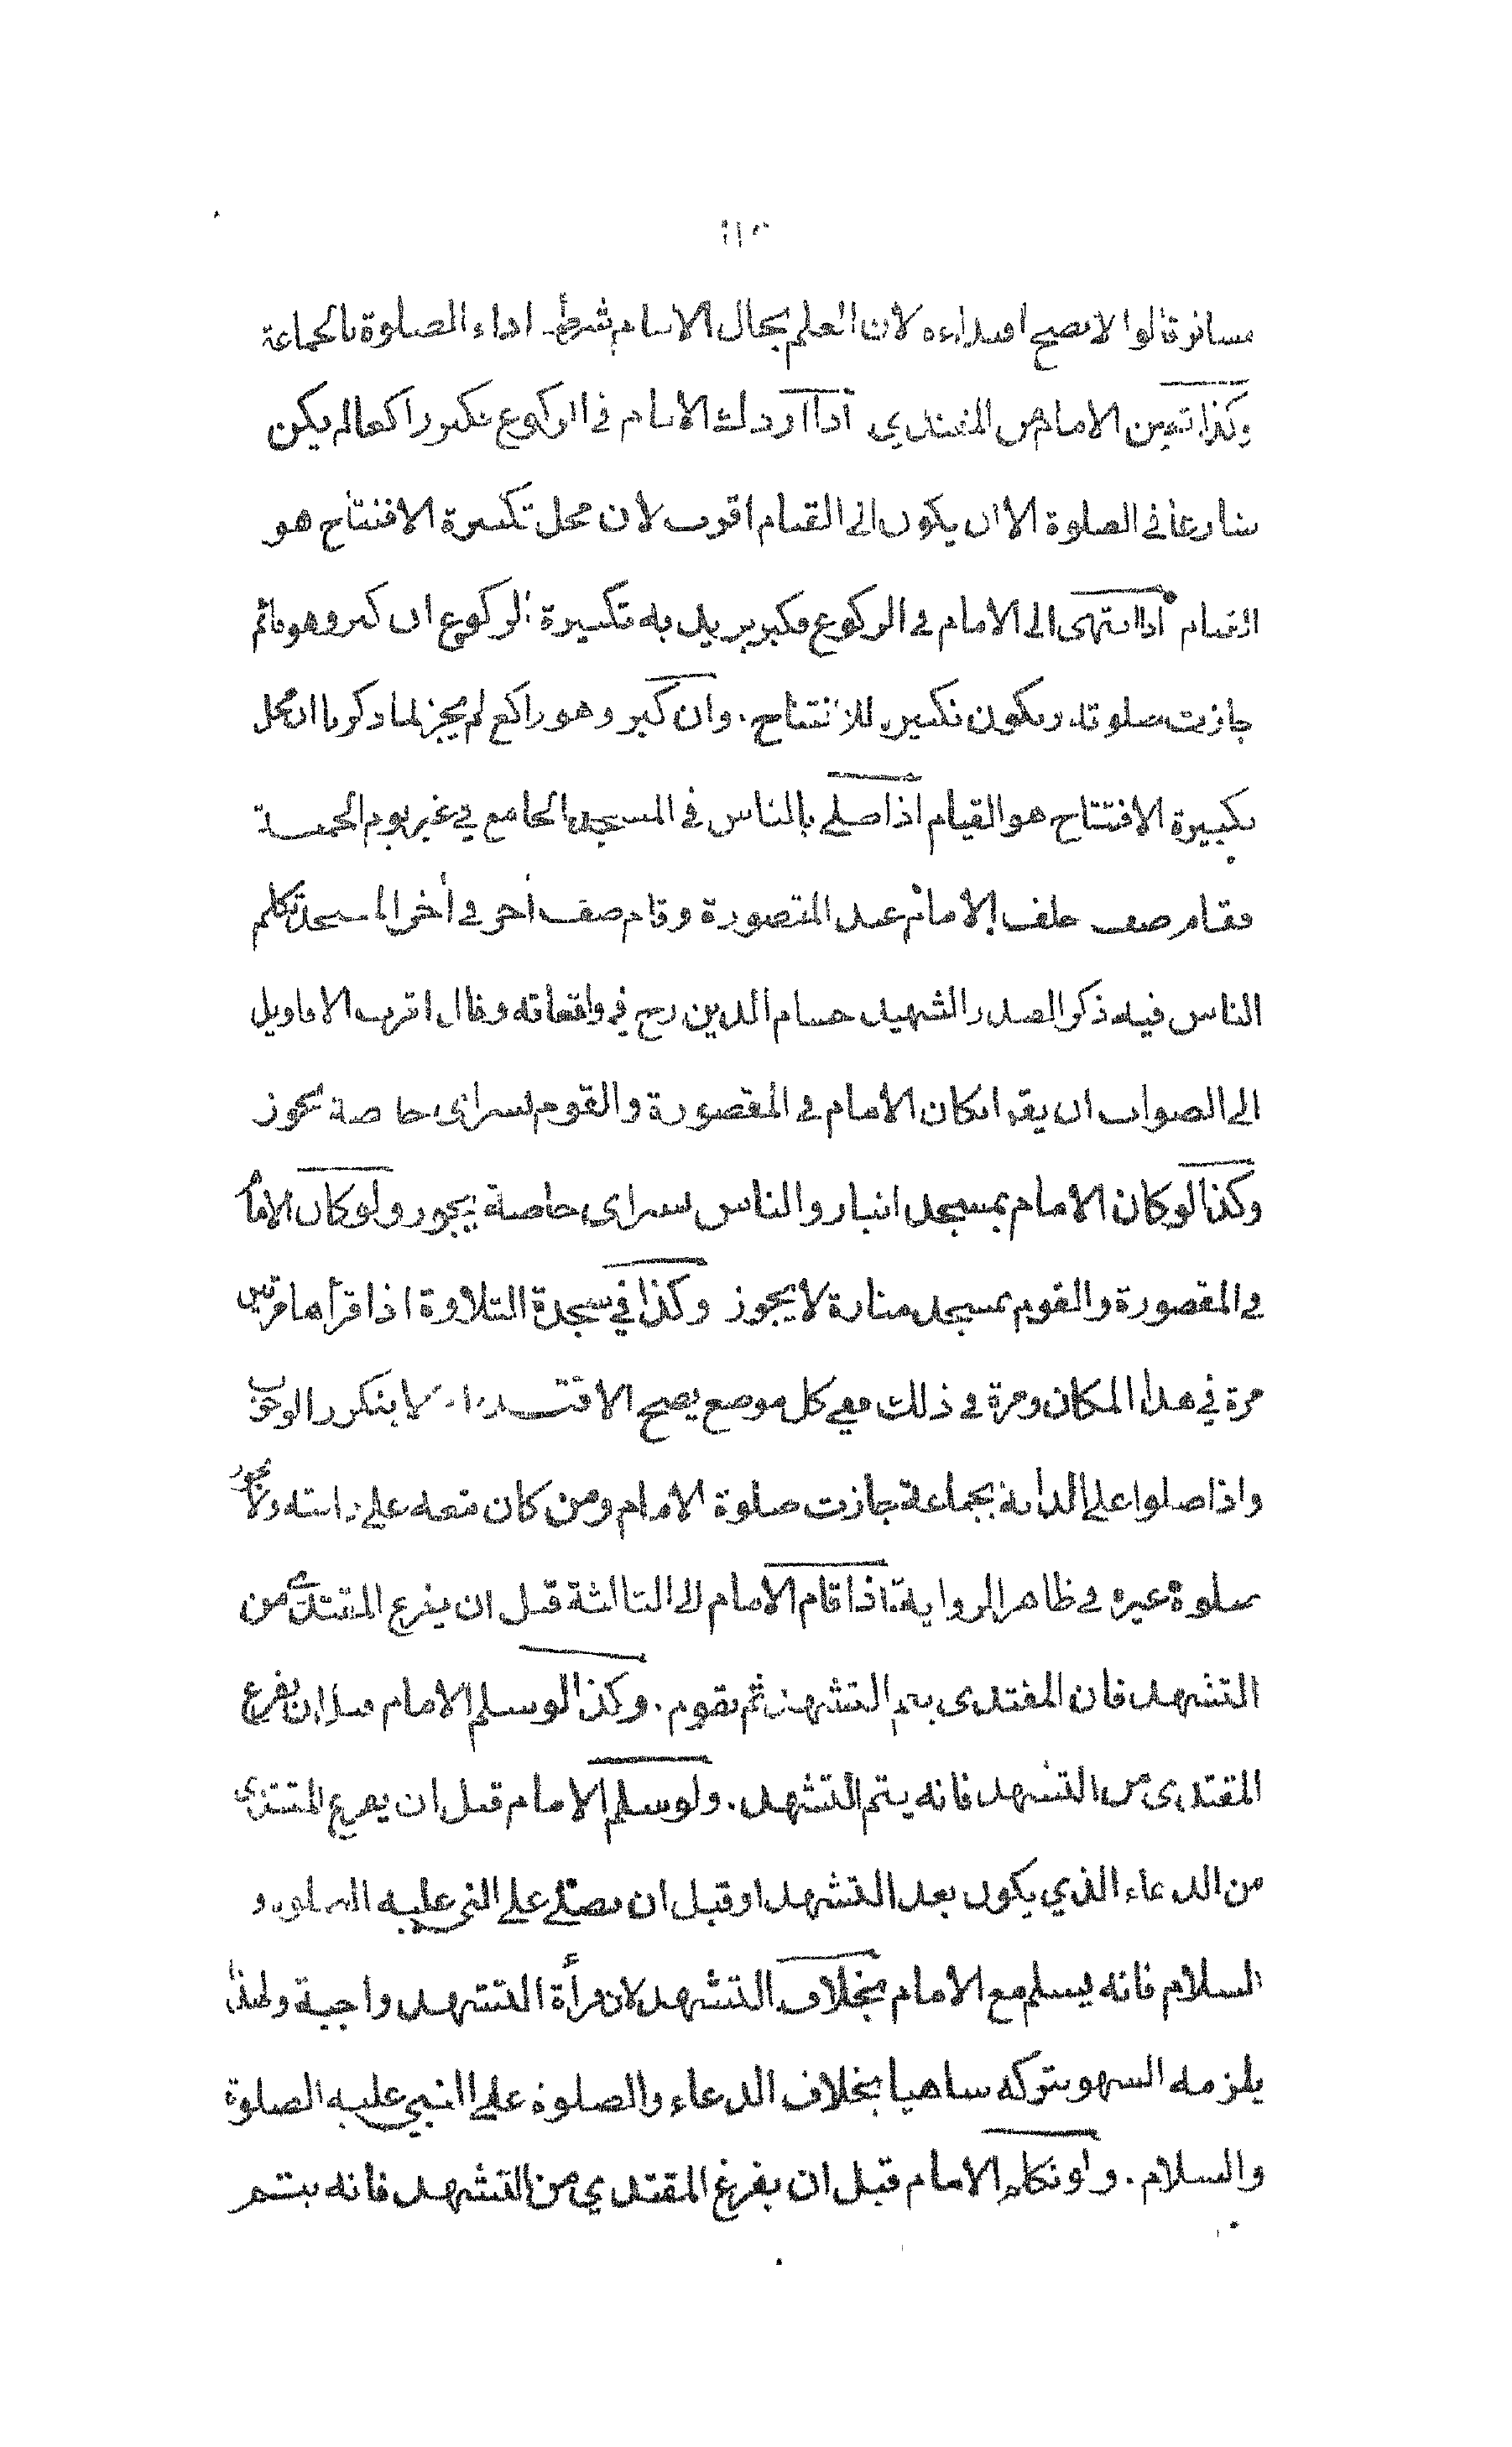 مسافر قالوا لا يصح اقتداءه لان العلم بحال الامام شرط اداء الصلوة بالجماعة
وكذا تعين الامام من المقتدي اذا ادرك الامام في الركوع فكبر راكعا لم يكن
شارعا في الصلوة الا ان يكون الى القيام اقرب لان محل تكبيرة الافتتاح هو
القيام اذا انتهى الى الامام في الركوع فكبر يريد به تكبيرة الركوع ان كبر وهو قائم
جازت صلوته ويكون تكبيره للافتتاح . وان كبر وهو راكع لم يجز لما ذكرنا ان محل
تكبيرة الافتتاح هو القيام اذا صلى بالناس في المسجد الجامع في غير يوم الجمعة
فقام صف خلف الامام عند المقصورة وقام صف أخر في أخر المسجد تكلم
الناس فيه ذكر الصدر الشهيد حسام الدين رح في واقعاته وقال اقرب الاقاويل
الى الصواب ان يقال كان الامام في المقصورة والقوم بسراى خاصة يجوز
وكذا لو كان الامام بمسجد انبار والناس بسراى خاصة يجوز ولو كان الامام
في المقصورة والقوم بمسجد منارة لا يجوز وكذا في سجدة التلاوة اذا قرأها مرتين
مرة في هذا المكان ومرة في ذلك ففي كل موضع يصح الاقتداء لا يتكرر الوجوب
واذا صلوا على الدابة بجماعة جازت صلوة الامام ومن كان معه على دابته ولا يجوز
صلوة غيره في ظاهر الرواية اذا قام الامام الى الثالثة قبل ان يفرغ المقتدي من
التشهد فان المقتدى يتم التشهد ثم يقوم . وكذا لو سلم الامام قبل ان يفرغ
المقتدى من التشهد فانه يتم التشهد . ولو سلم الامام قبل ان يفرغ المقتدى
من الدعاء الذي يكون بعد التشهد او قبل ان يصلي على النبي عليه الصلوة و
السلام فانه يسلم مع الامام بخلاف التشهد لان قرأة التشهد واجبة ولهذا
يلزمه السهو بتركه ساهيا بخلاف الدعاء والصلوة على النبي عليه الصلوة
والسلام . ولو تكلم الامام قبل ان يفرغ المقتدي من التشهد فانه يتم